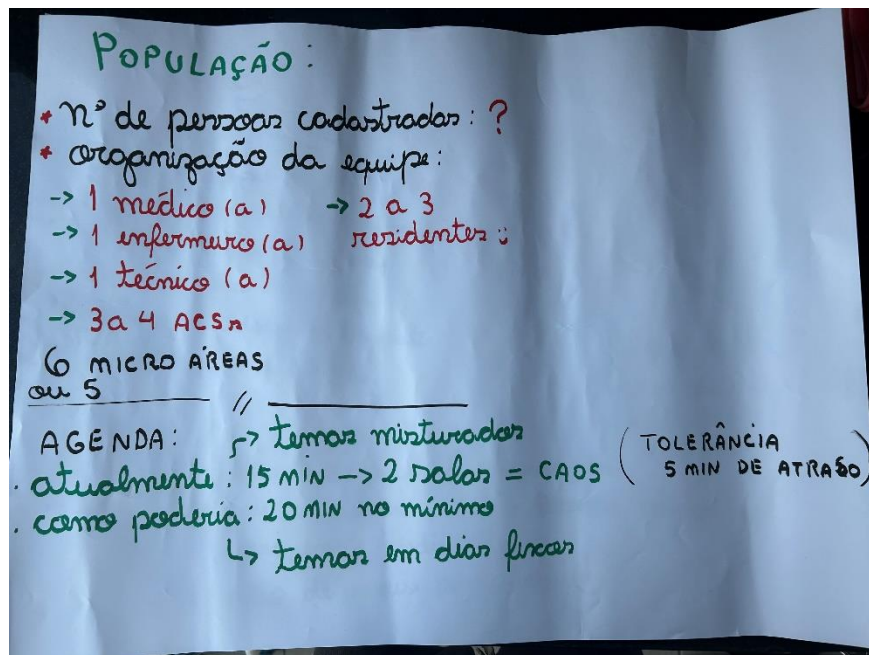 POPULAÇÃO:
* nº de pessoas cadastradas: ?
* organização da equipe:
-> 1 médico (a) -> 2 a 3
-> 1 enfermeiro (a) residentes :)
-> 1 técnico (a)
-> 3 a 4 ACSs
6 MICRO ÁREAS
ou 5
//
AGENDA: -> temas misturados
. atualmente: 15 MIN -> 2 salas = CAOS (TOLERÂNCIA
5 MIN DE ATRASO)
. como poderia: 20 MIN no mínimo
-> temas em dias fixos